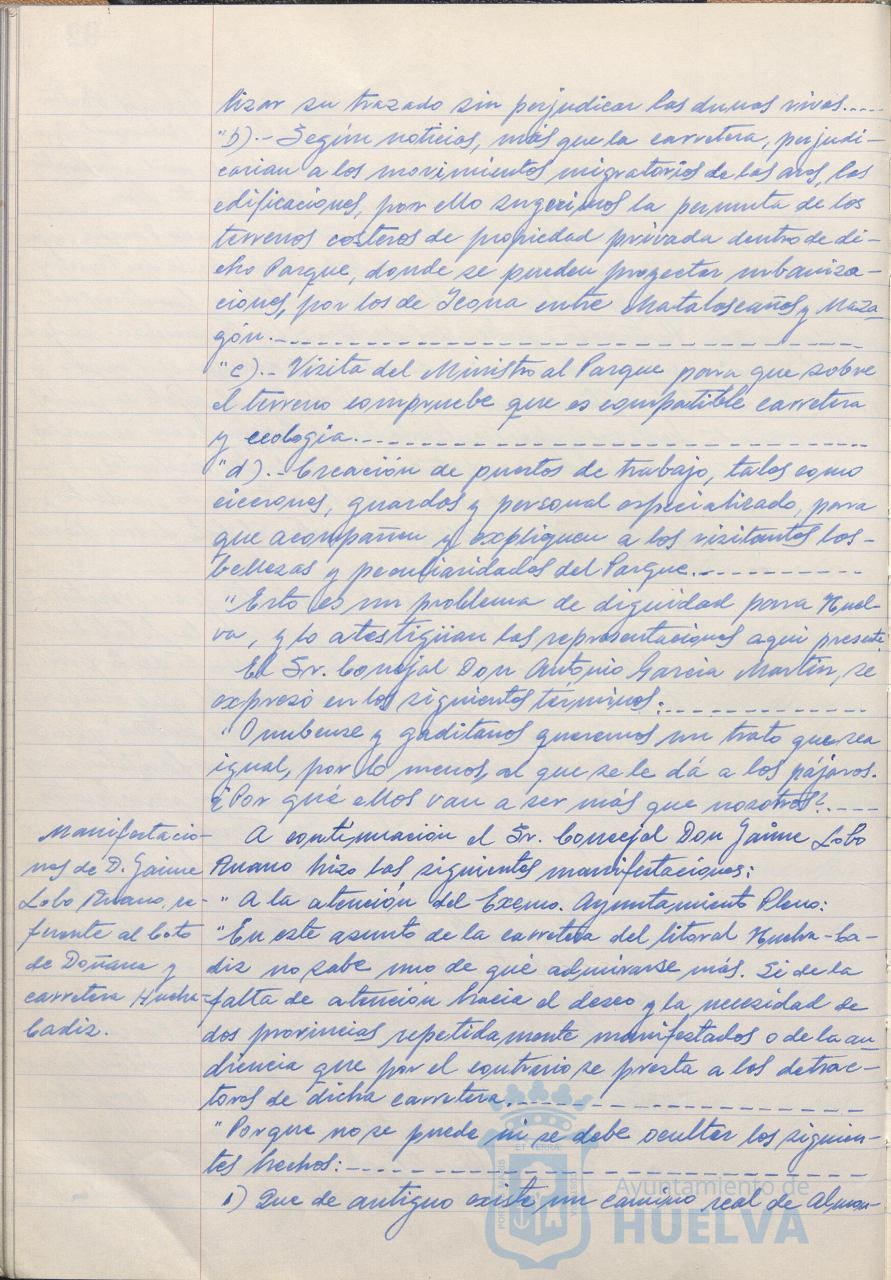 lizar su trazado sin perjudicar las dunas vivas.----
"b).- Según noticias, más que la carretera, perjudi-
carían a los movimientos migratorios de las aves, las
edificaciones, por ello sugerimos la permuta de los
terrenos costeros de propiedad privada dentro de di-
cho Parque, donde se pueden proyectar urbaniza-
ciones, por los de Icona entre Matalascañas y Maza-
gón.---------------------
"c).- Visita del Ministro al Parque para que sobre
el terreno compruebe que es compatible carretera
y ecología.---------------------
"d).- Creación de puestos de trabajo, tales como
cicerones, guardas y personal especializado, para
que acompañen y expliquen a los visitantes las-
bellezas y peculiaridades del Parque.-----------
"Esto es un problema de dignidad para Huel-
va, y lo atestigüan las representaciones aquí presente
El Sr. Concejal Don Antonio García Martín, se
expresó en los siguientes términos:-----------
"Onubense y gaditanos queremos un trato que sea
igual, por lo menos, al que se le dá a los pájaros.
¿Por qué ellos van a ser más que nosotros?.----
Manifestacio-
nes de D. Jaime
Lobo Ruano, re-
ferente al Coto
de Doñana y
carretera Huelva-
Cadiz.
A continuación el Sr. Concejal Don Jaime Lobo
Ruano hizo las siguientes manifestaciones:
"A la atención del Excmo. Ayuntamiento Pleno:
"En este asunto de la carretera del litoral Huelva-Ca-
diz no sabe uno de qué admirarse más. Si de la
falta de atención hacia el deseo y la necesidad de
dos provincias repetidamente manifestados o de la au-
diencia que por el contrario se presta a los detrac-
tores de dicha carretera.---------------
"Porque no se puede ni se debe ocultar los siguien-
tes hechos:---------------------
1) Que de antiguo existe un camino real de Almon-
Ayuntamiento de
HUELVA